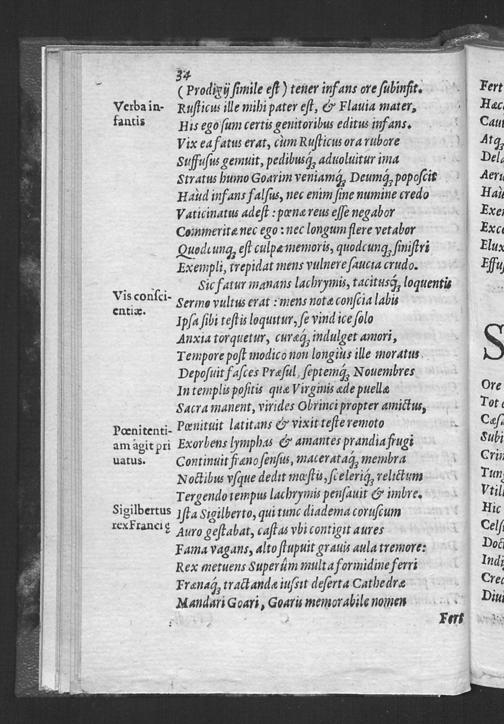 34
(Prodigij ſimile eſt) tener infans ore ſubinfit.
Verba in-
fantis
Ruſticus ille mihi pater eſt, & Flauia mater,
His ego ſum certis genitoribus editus infans.
Vix ea fatus erat, cùm Ruſticus ora rubore
Suffuſus gemuit, pedibusq́; aduoluitur ima
Stratus humo Goarim veniamq́; Deumq́; popoſcit
Haùd infans falſus, nec enim ſine numine credo
Vaticinatus adeſt: pœnæ reus eſſe negabor
Commeritæ nec ego: nec longum flere vetabor
Quodcunq; eſt culpæ memoris, quodcunq; ſiniſtri
Exempli, trepidat mens vulnere ſaucia crudo.
Sic fatur manans lachrymis, tacitusq́; loquentis
Vis conſci-
entiæ.
Sermo vultus erat: mens notæ conſcia labis
Ipſa ſibi teſtis loquutur, ſe vindice ſolo
Anxia torquetur, curæq́; indulget amori,
Tempore poſt modico non longiùs ille moratus
Depoſuit faſces Præſul, ſeptemq́; Nouembres
In templis poſitis quæ Virginis æde puellæ
Sacra manent, virides Obrinci propter amictus,
Pœnitenti-
am agit pri
uatus.
Pœnituit latitans & vixit teſte remoto
Exorbens lymphas & amantes prandia frugi
Continuit fræno ſenſus, macerataq́; membra
Noctibus vſque dedit mœſtis, ſceleriq́; relictum
Tergendo tempus lachrymis penſauit & imbre.
Sigilbertus
rex Francię
Iſta Sigilberto, qui tunc diadema coruſcum
Auro geſtabat, caſtas vbi contigit aures
Fama vagans, alto ſtupuit grauis aula tremore:
Rex metuens Superûm multa formidine ferri
Frænaq́; tractandæ iuſsit deſerta Cathedræ
Mandari Goari, Goaris memorabile nomen
Fert